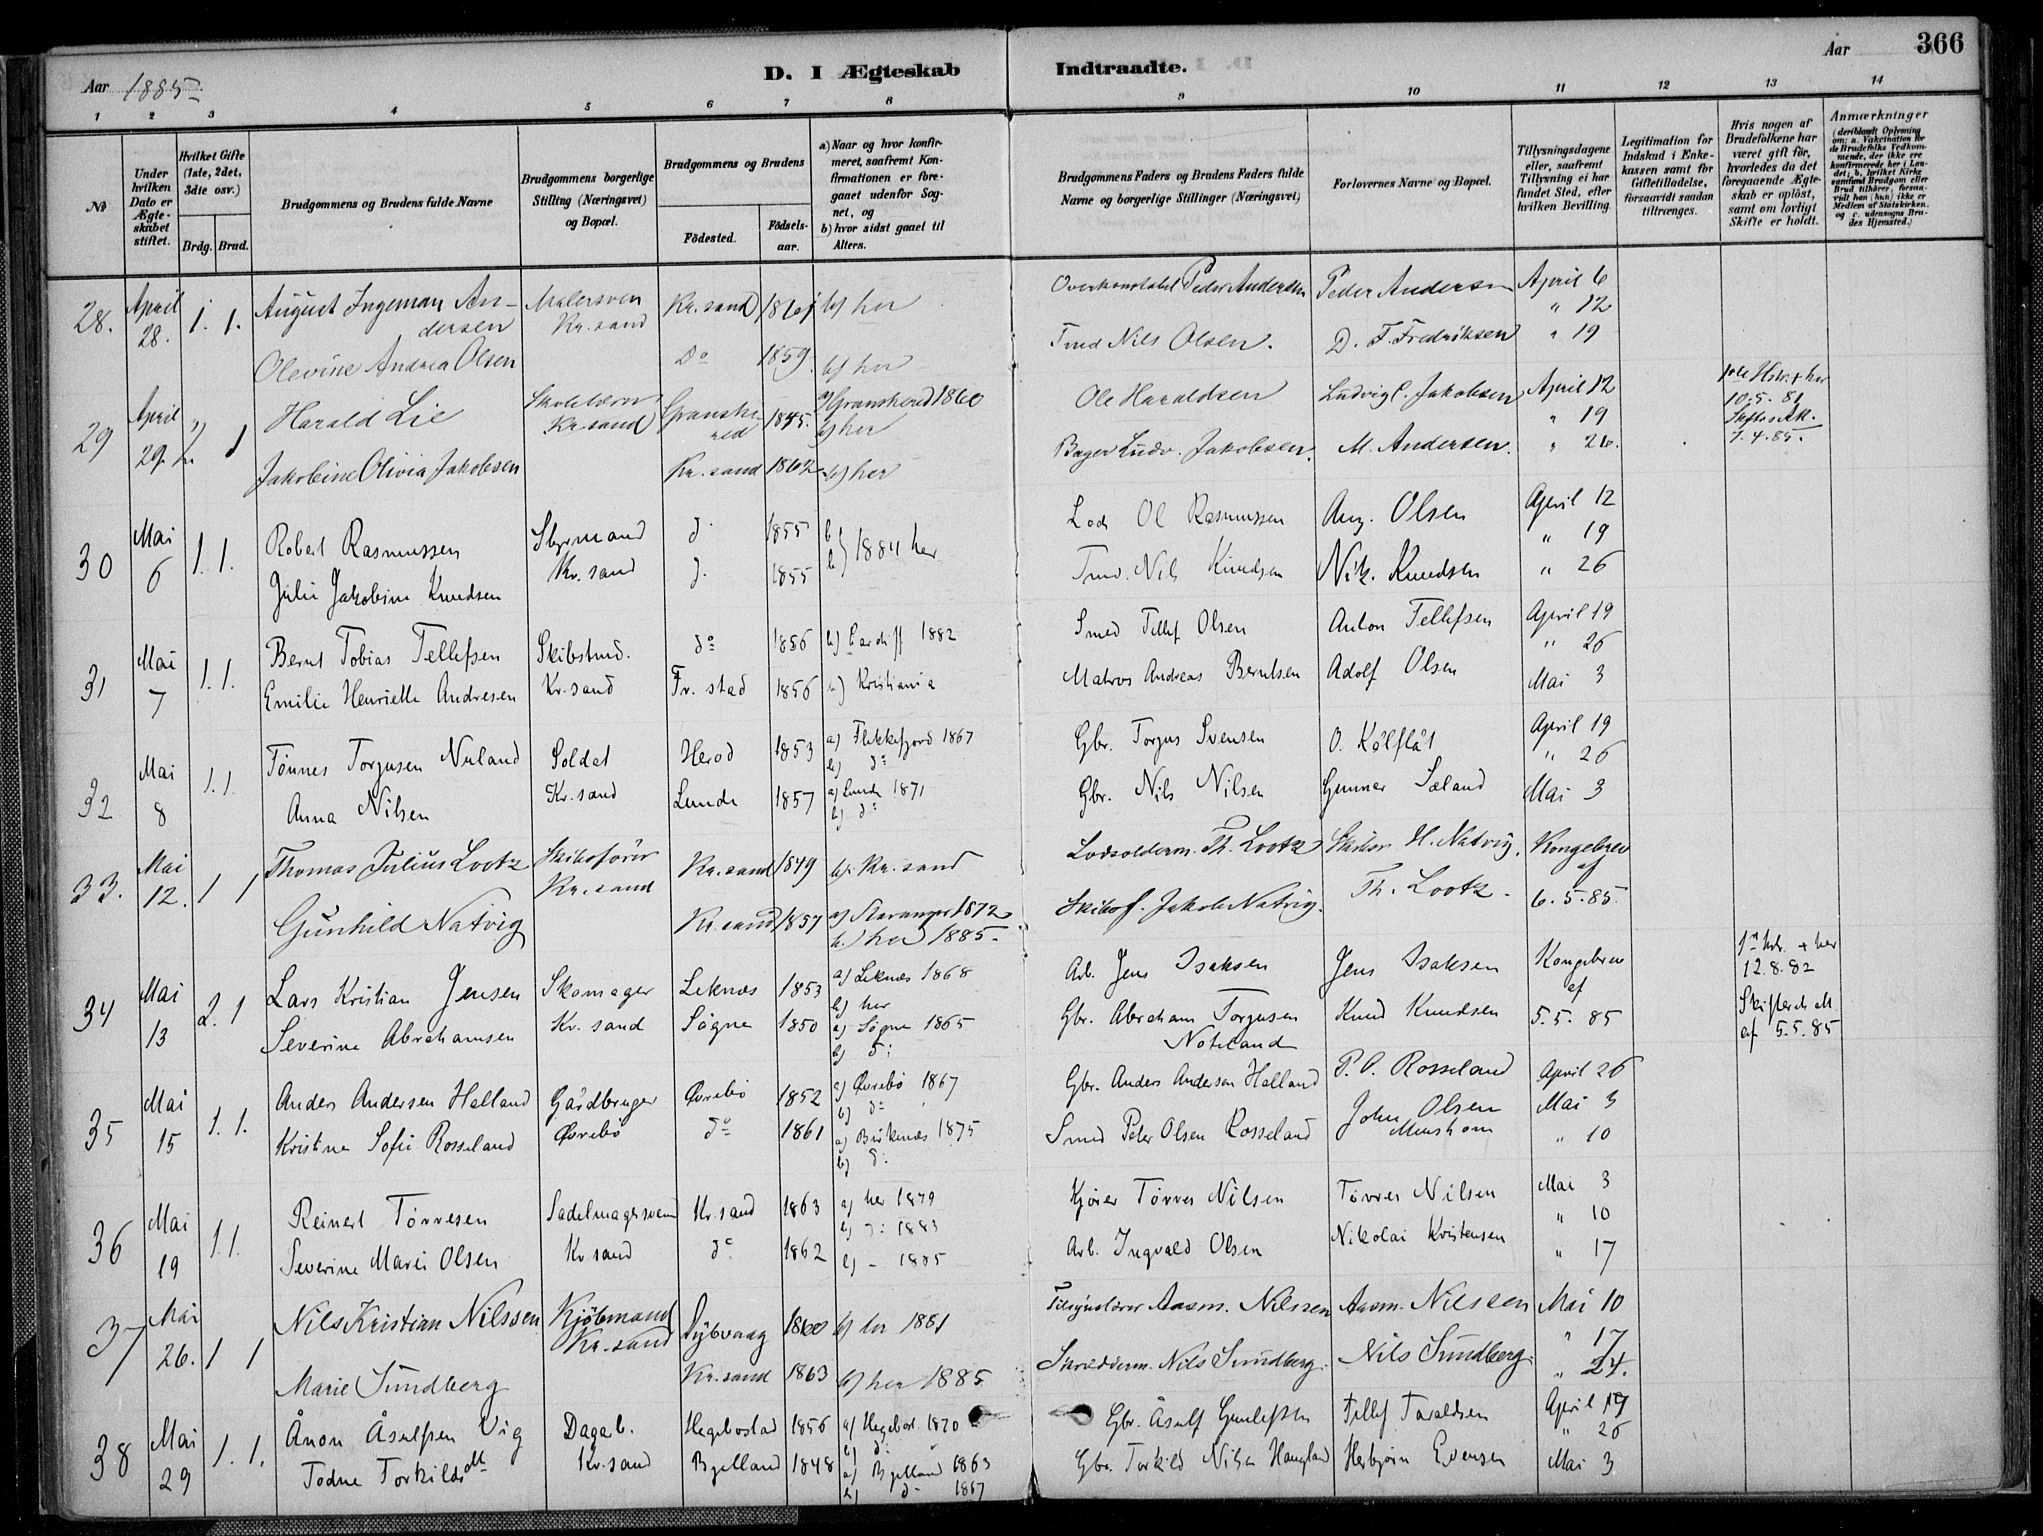 Aar 1885.
D. I Ægteskab
Indtraadte.
Aar
366
1 2 3 4 5 6 7 8 9 10 11 12 13 14
No
Under hvilken Dato er Ægteskabet stiftet.
Hvilket Gifte (1ste, 2det, 3die osv.)
Brdg. Brud.
Brudgommens og Brudens fulde Navne
Brudgommens borgerlige Stilling (Næringsvei) og Bopæl.
Brudgommens og Brudens
Födested.
Födselsaar.
a) Naar og hvor konfirmeret, saafremt Konfirmationen er foregaaet udenfor Sognet, og
b) hvor sidst gaaet til Alters.
Brudgommens Faders og Brudens Faders fulde Navne og borgerlige Stillinger (Næringsvei)
Forlovernes Navne og Bopæl.
Tillysningsdagene eller, saafremt Tillysning ei har fundet Sted, efter hvilken Bevilling
Legitimation for Indskud i Enkekassen samt for Giftetilladelse, forsaavidt saadan tiltrænges.
Hvis nogen af Brudefolkene har været gift för, hvorledes da det foregaaende Ægteskab er oplöst, samt om lovligt Skifte er holdt.
Anmærkninger (deriblandt Oplysning om: a. Vakcination for de Brudefolks Vedkommende, der ikke ere konfirmerede her i Landet; b. hvilket Kirkesamfund Brudgom eller Brud tilhörer, forsaavidt han (hun) ikke er Medlem af Statskirken, og c. udensogns Brudes Hjemsted.)
28. April 28. 1. 1. August Ingeman Andersen Malersven Kr.sand Kr.sand 1861 b) her Overkonstabel Peder Andersen Peder Andersen April 6
" 12
Olevine Andrea Olsen Do 1859 b) her Tmd Nils Olsen. D. F. Fredriksen " 19
29 April 29. 2. 1 Harald Lie Skolelærer Kr.sand Gransherred 1845. a) Gransherred 1860 b) her Ole Haraldsen Ludvig C. Jakobsen April 12
" 19
Jakobine Olivia Jakobsen Kr.sand 1862 b) her Bager Ludv. Jakobsen. M. Andersen. " 26.
10.5.81
7.4.85.
30 Mai 6 1. 1. Robert Rasmussen Styrmand Kr.sand d. 1855 b) 1884 her Lods Ol Rasmussen Aug. Olsen April 12
" 19
Julie Jakobine Knudsen d. 1855 Tmd. Nils Knudsen Nik. Knudsen " 26
31 Mai 7 1. 1. Bernt Tobias Tellefsen Skibstmd. Kr.sand do 1856 b) Cardiff 1882 Smed Tellef Olsen Anton Tellefsen April 19
" 26
Emilie Henriette Andresen Fr.stad 1856 a) Kristiania Matros Andreas Berntsen Adolf Olsen Mai 3
32 Mai 8 1. 1. Tönnes Torjusen Nuland Soldat Kr.sand Herod 1853 a) Flekkefjord 1867 b) do Gbr. Torjus Svensen O. Kölflåt April 19
" 26
Anna Nilsen Lunde 1857 a) Lunde 1871 b) do Gbr. Nils Nilsen Gunnar Sæland Mai 3
33. Mai 12. 1 1 Thomas Julius Lootz Skibsförer Kr.sand Kr.sand 1849 b). Kr.sand Lodsolderm. Th. Lootz H. Natvig. Kongebrev af
Gunhild Natvig Kr.sand 1857 a) Stavanger 1872 b.) her 1885. Skibsf. Jakob Natvig. Th. Lootz. 6.5.85.
34 Mai 13 2. 1 Lars Kristian Jensen Skomager Kr.sand Leknæs 1853 a) Leknæs 1868 b) her Arb. Jens Isaksen Jens Isaksen Kongebrev af
Severine Abrahamsen Sögne 1850 a) Sögne 1865 b) d: Gbr. Abraham Torjusen Noteland Knud Knudsen 5.5.85
12.8.82
af 5.5.85
35 Mai 15 1. 1. Anders Andersen Helland Gårdbruger Øvrebö Øvrebö 1852 a) Øvrebö 1867 b) do Gbr. Anders Andersen Helland P. O. Rosseland April 26
Kristine Sofie Rosseland do 1861 a) Birkenæs 1875 b) d: Smed Peter Olsen Rosseland John Olsen Mai 3
" 10
36 Mai 19 1. 1. Reinert Törresen Sadelmagersvend Kr.sand Kr.sand 1863 a) her 1879 b) d: 1883 Kjörer Törres Nilsen Törres Nilsen Mai 3
" 10
Severine Marie Olsen do 1862 b) - 1885 Arb. Ingvald Olsen Nikolai Kristensen " 17
37 Mai 26. 1 1 Nils Kristian Nilssen Kjöbmand Kr.sand Dybvaag 1860 b) her 1881 Aasm. Nilssen Aasm. Nilssen Mai 10
" 17
Marie Sundberg Kr.sand 1863 b) her 1885 Skrædderm. Nils Sundberg. Nils Sundberg. " 24.
38 Mai 29 1. 1. Ånon Åsulfsen Vig Dagab. Kr.sand Hegebostad 1856 a) Hegebost. 1870 b) d: Gbr. Åsulf Gunlefsen Tellef Taraldsen April 19
" 26
Todne Torkildsdt Bjelland 1848 a) Bjelland 1863 b) d- 1867 Gbr. Torkild Nilsen Haugland Herbjörn Evensen Mai 3